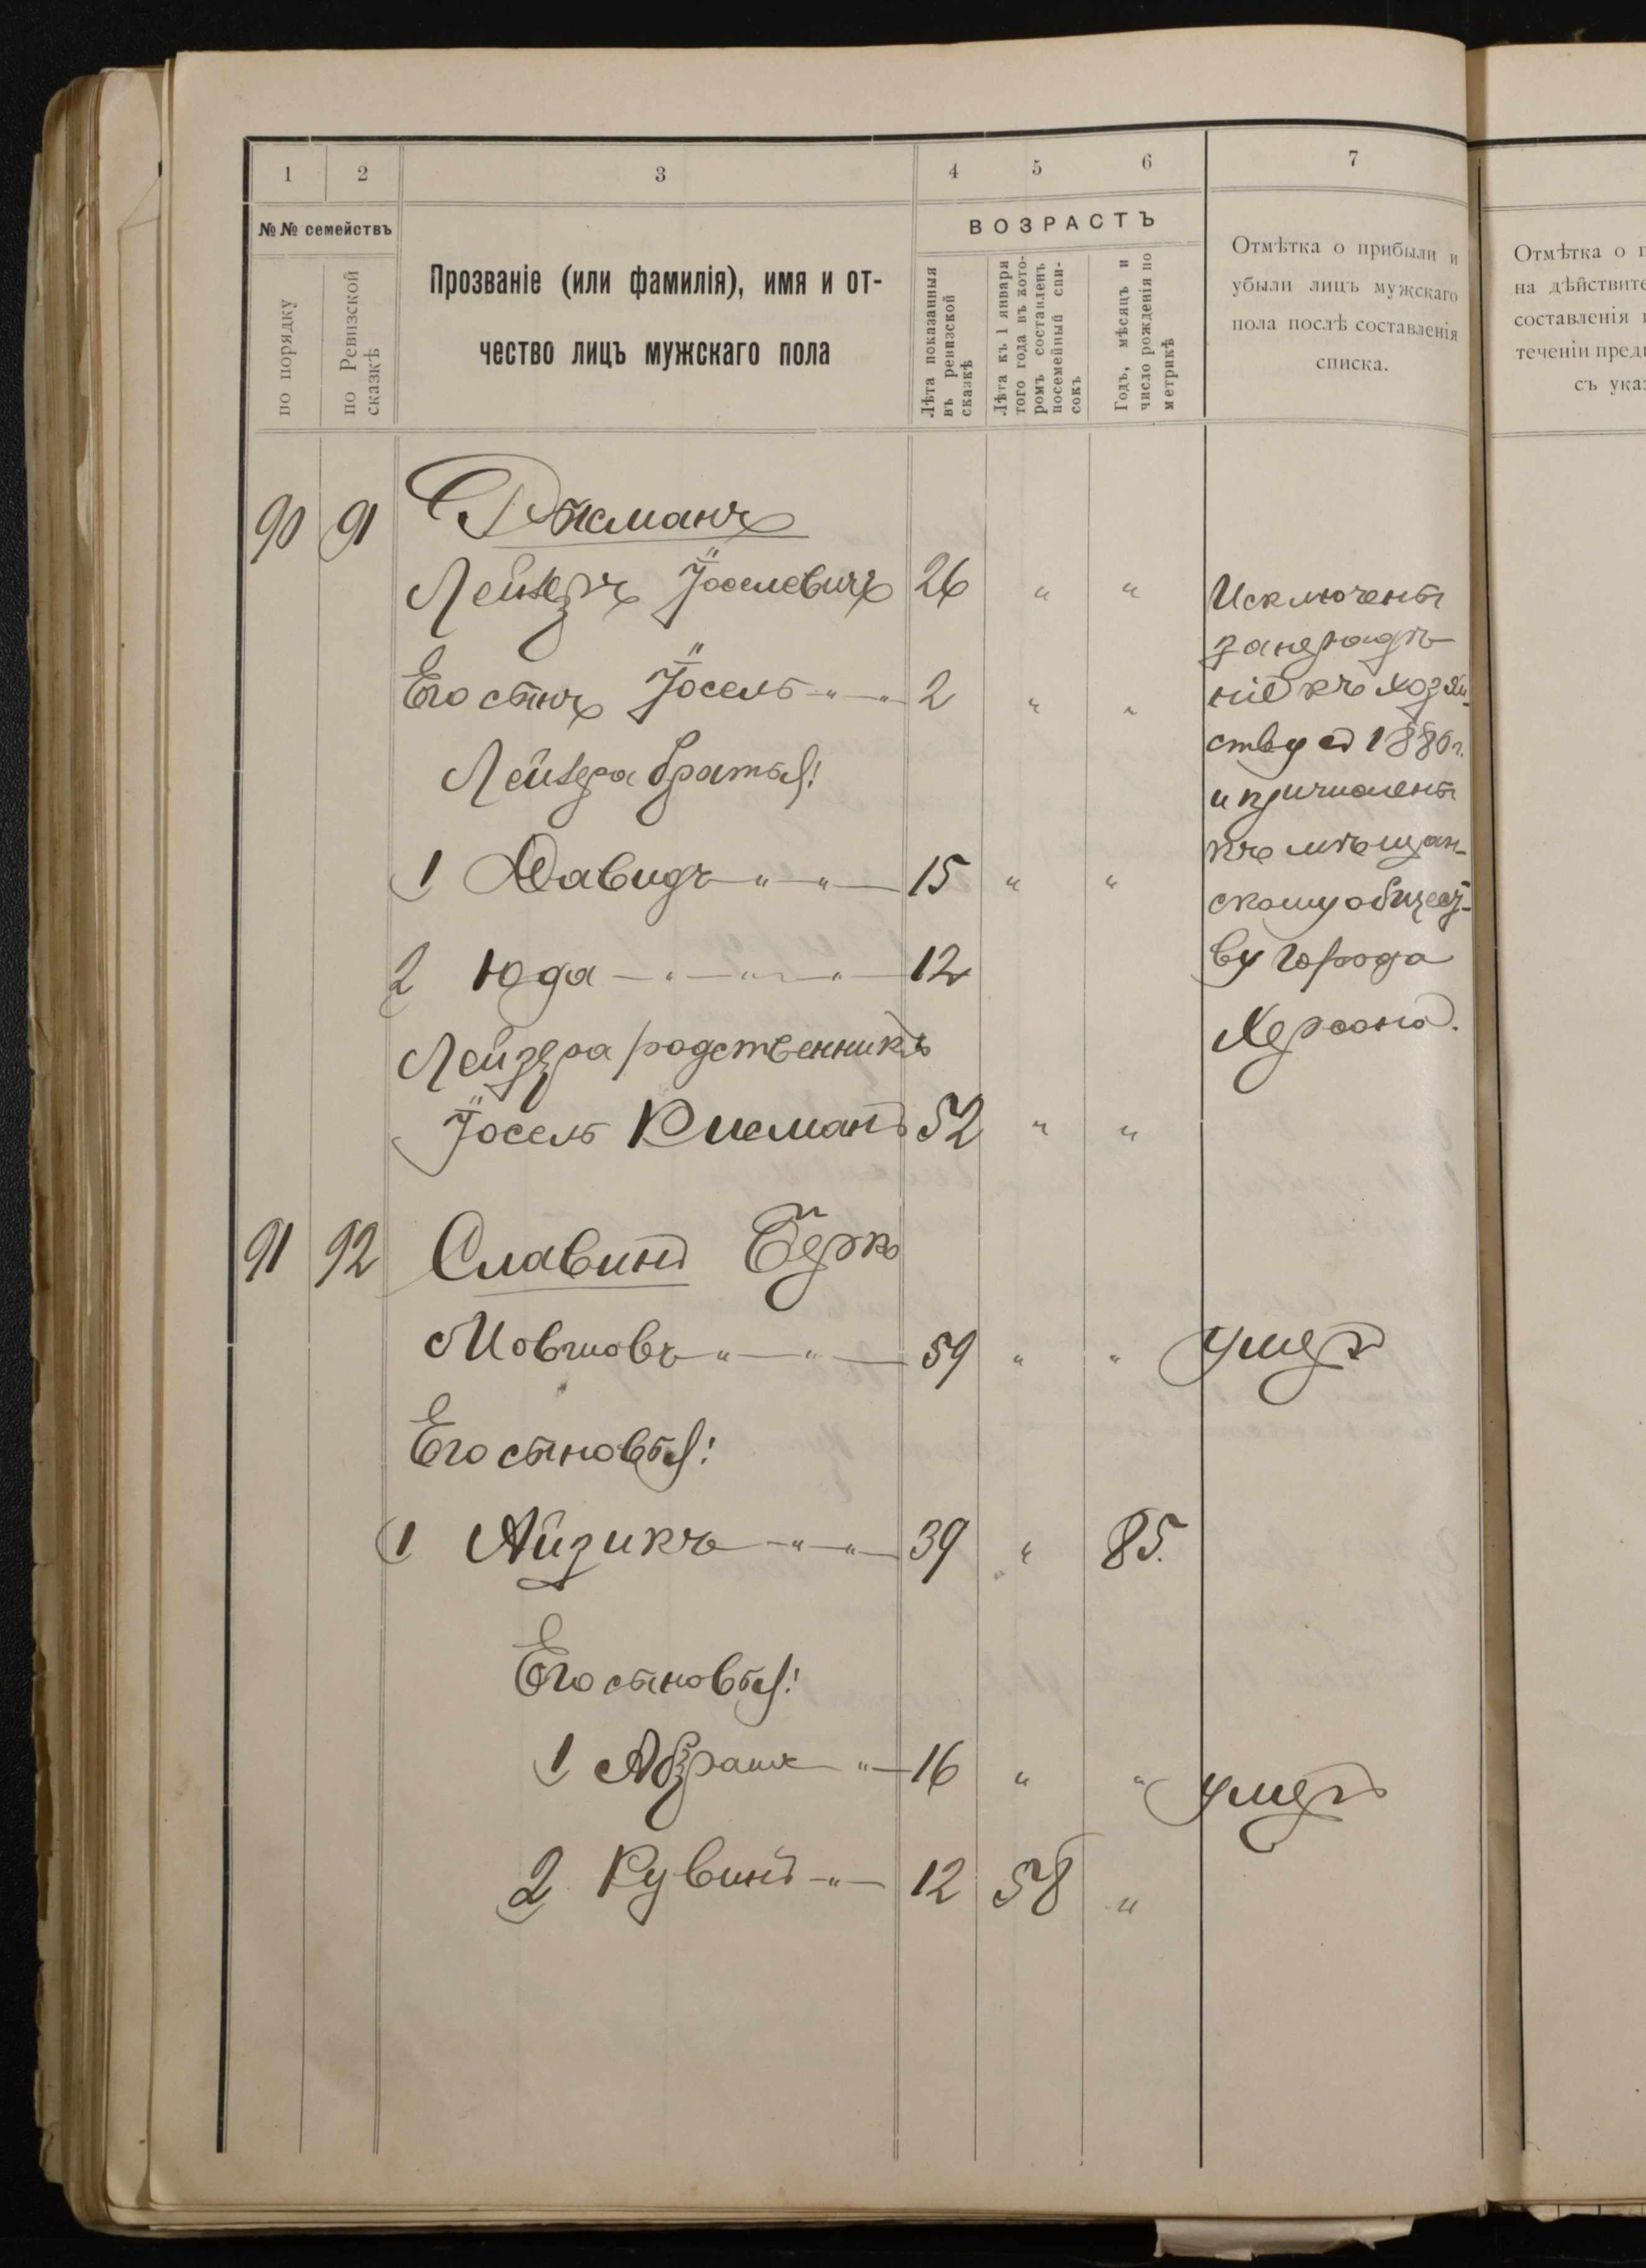 1 2 3 4 5 6 7
№№ семействъ
по порядку
по Ревизской сказкѣ
Прозваніе (или фамилія), имя и от-
чество лицъ мужскаго пола
ВОЗРАСТЪ
Лѣта показанныя въ ревизской сказкѣ
Лѣта къ 1 января того года въ кото-ромъ составленъ посемейный спи-сокъ
Годъ, мѣсяцъ и число рожденія по метрикѣ
Отмѣтка о прибыли и
убыли лицъ мужскаго
пола послѣ составленія
списка.
Отмѣтка о
на дѣйствите
составленія
теченіи пред
съ ука
90 91
Лейзеръ Іоселевичъ 26 " "
Его сынъ Іосель 2 " "
Лейзера братья:
1 Давидъ 15 " "
2 Юда 12
Лейзера родственникъ
Іосель Рисманъ 52 " "
Исключены
за нерадѣ-
ніе къ хозяй-
ству въ 1886 г.
и причислены
къ мѣщан-
скому общест-
ву города
Херсона.
91 92 Славинъ Берко
Мовшовъ 59 " " умеръ
Его сыновья:
1 Айзикъ 39 " 85.
Его сыновья:
1 Абрамъ 16 " " умеръ
2 Рувинъ 12 58 "